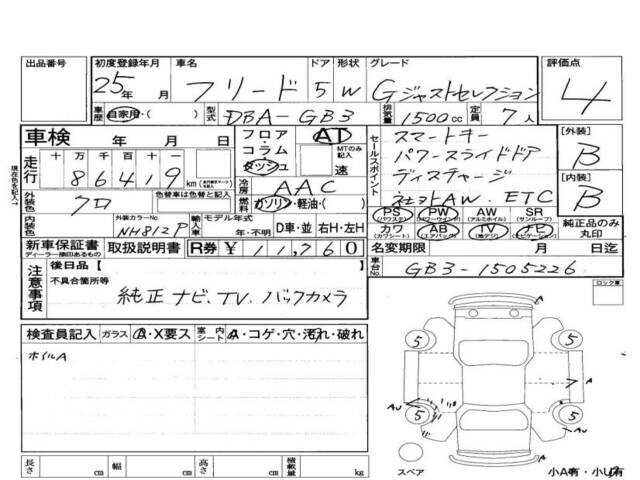 出品番号 初度登録年月 車名 ドア 形状 グレード 評価点
25年 月 フリード 5 W Gジャストセレクション 4
車歴 自家用・( ) 型式 DBA-GB3 排気量 1500cc 定員 7人
車検 年 月 日 フロア・コラム・ダッシュ AT MTのみ記入 速 セールスポイント スマートキー [外装] B
現在色を記入→ 走行 十万千百十一 86419 km パワースライドドア
ディスチャージ [内装] B
外装色 クロ 色替車は色替前の色 冷房 AAC 社外AW. ETC
燃料 ガソリン・軽油・( )
内装色 外装カラーNo. NH812P 輸入車 モデル年式 年・不明 D車・並 右H・左H
PS (パワステ) PW (パワーウインドウ) AW (アルミホイル) SR (サンルーフ) 純正品のみ丸印
カワ (カワシート) AB (エアバッグ) TV (地デジ) ナビ (ナビゲーション)
新車保証書 ディーラー捺印あるもの 取扱説明書 R券 ¥ 11,760 名変期限 月 日迄
車台No. GB3-1505226
注意事項 後日品【 】
不具合箇所等
純正ナビ.TV.バックカメラ
ロック車
検査員記入 ガラス A・X要ス 室内シート A・コゲ・穴・汚れ・破れ
ホイルA
A
5 5
A
AU 5 5 AU
A
長さ cm 幅 cm 高さ cm 積載量 kg スペア 小A有・小U有